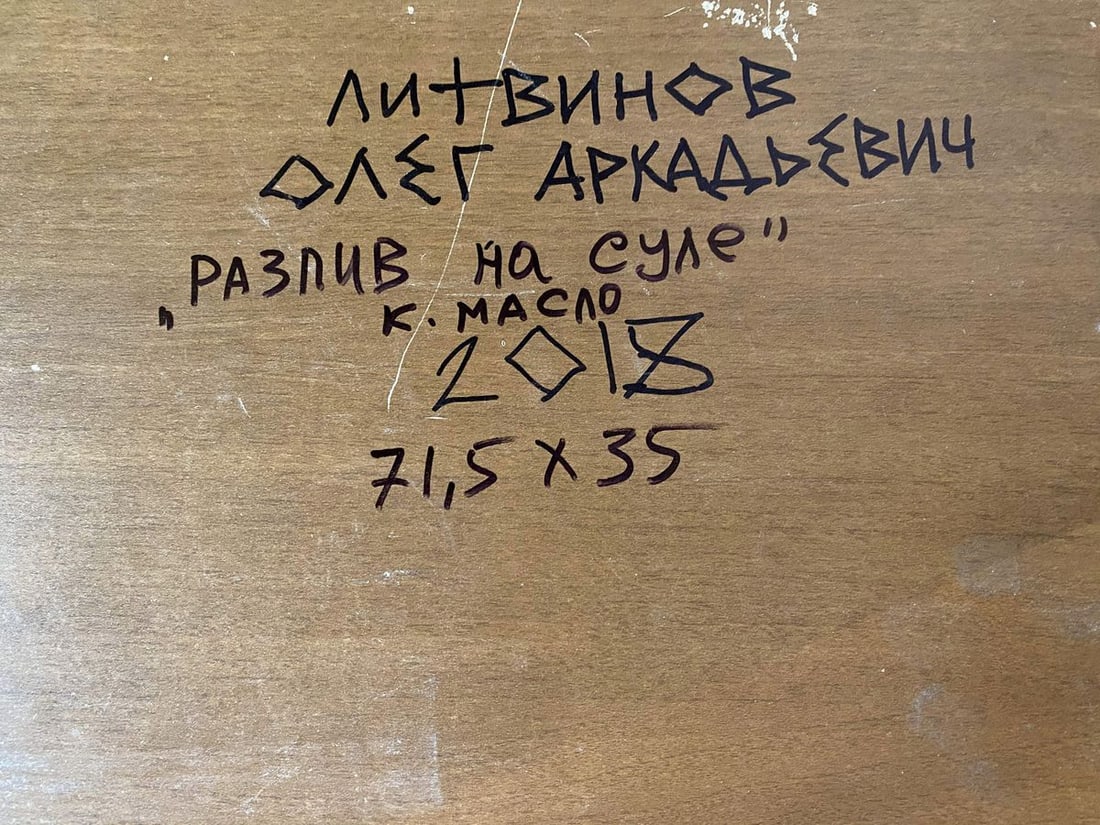 ЛИТВИНОВ
ОЛЕГ АРКАДЬЕВИЧ
„РАЗЛИВ на СУЛЕ”
К. МАСЛО
2018
71,5 х 35